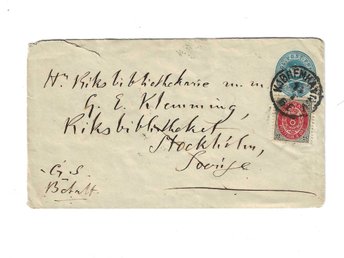 Hr Riksbibliothekarie m. m.
G. E. Klemming,
Riksbibliotheket,
Stockholm,
Sverige
KJØBENHAVN